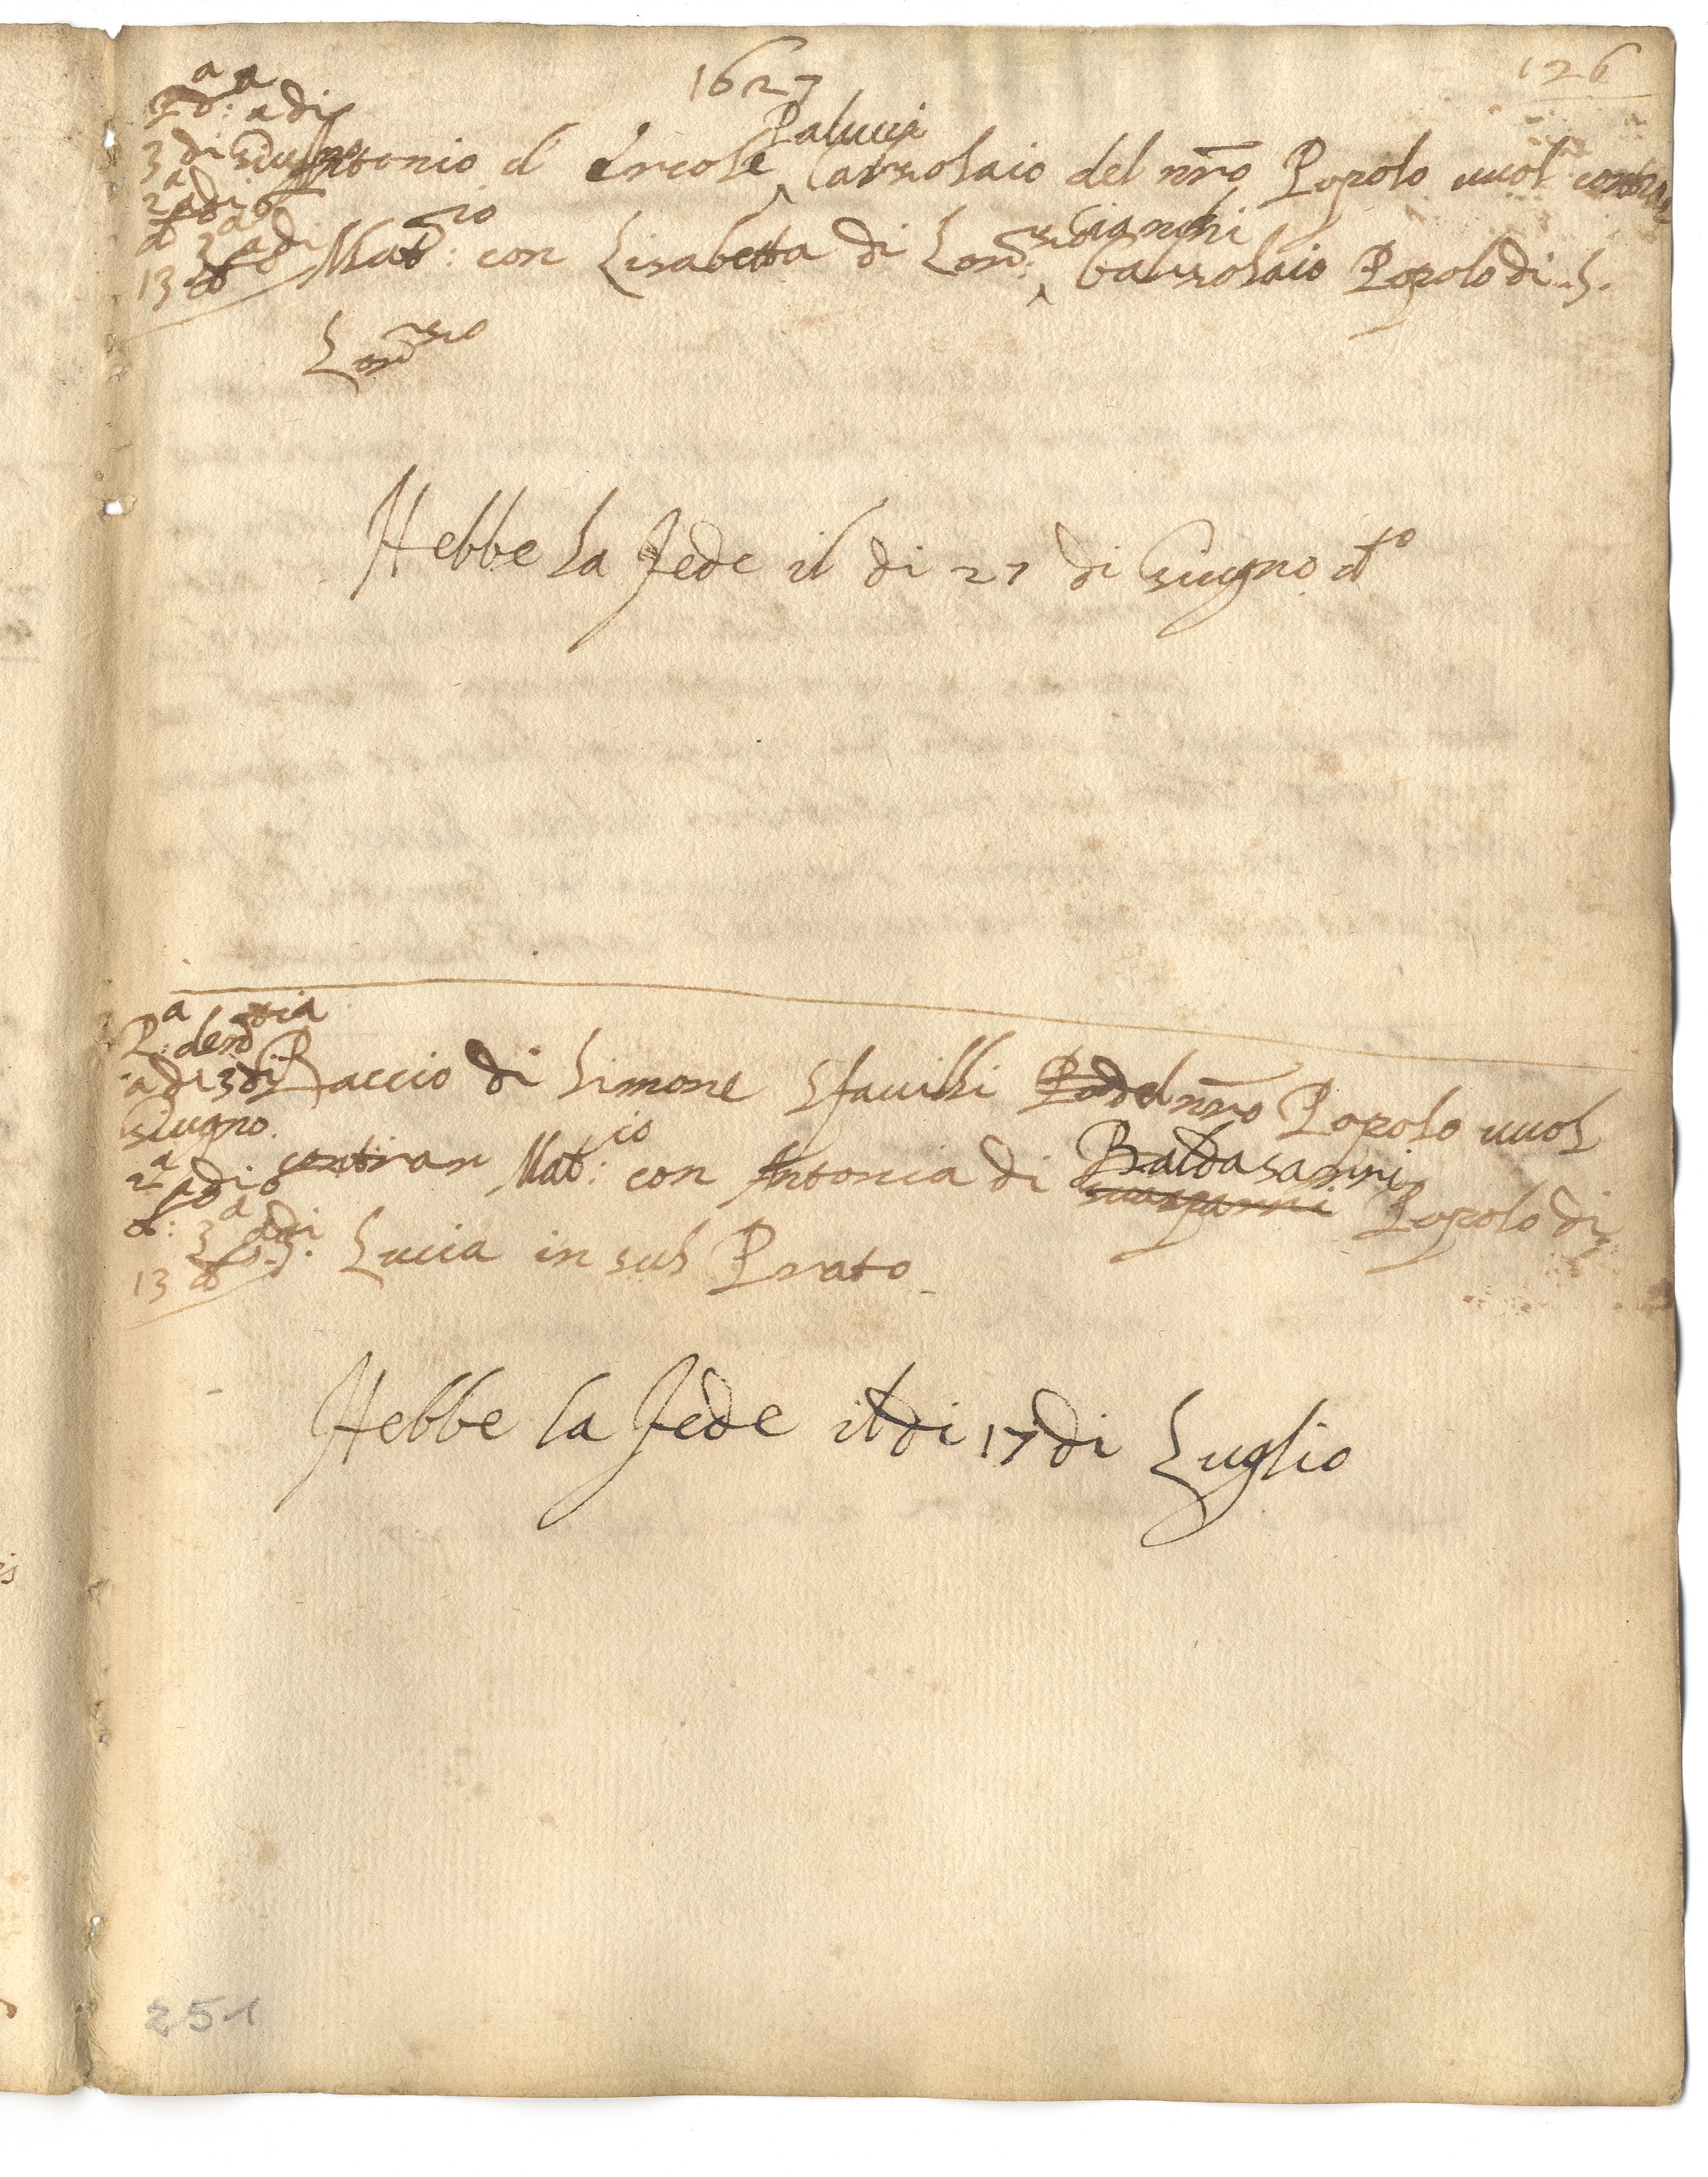 1627
126
Pa: da: a di
3 di Giugno
2a a di 6
do 3a a di
13 do
Palucci
Antonio d' Ercole Calzolaio del nro Popolo vuol contrar
Matio: con Lisabetta di Lorzo: Cianchi Calzolaio Popolo di S.
Lorenzo
Hebbe la fede il di 27 di Giugno do
Pa: dentia
a di 3 di
Giugno.
2a a di 6
do: 3a a di
13 do
Baccio di Simone Sfavilli Po del nro Popolo vuol
contrar Matio: con Antonia di Baldasarri Popolo di
S. Lucia in sul Prato
Hebbe la fede il di 17 di Luglio
251